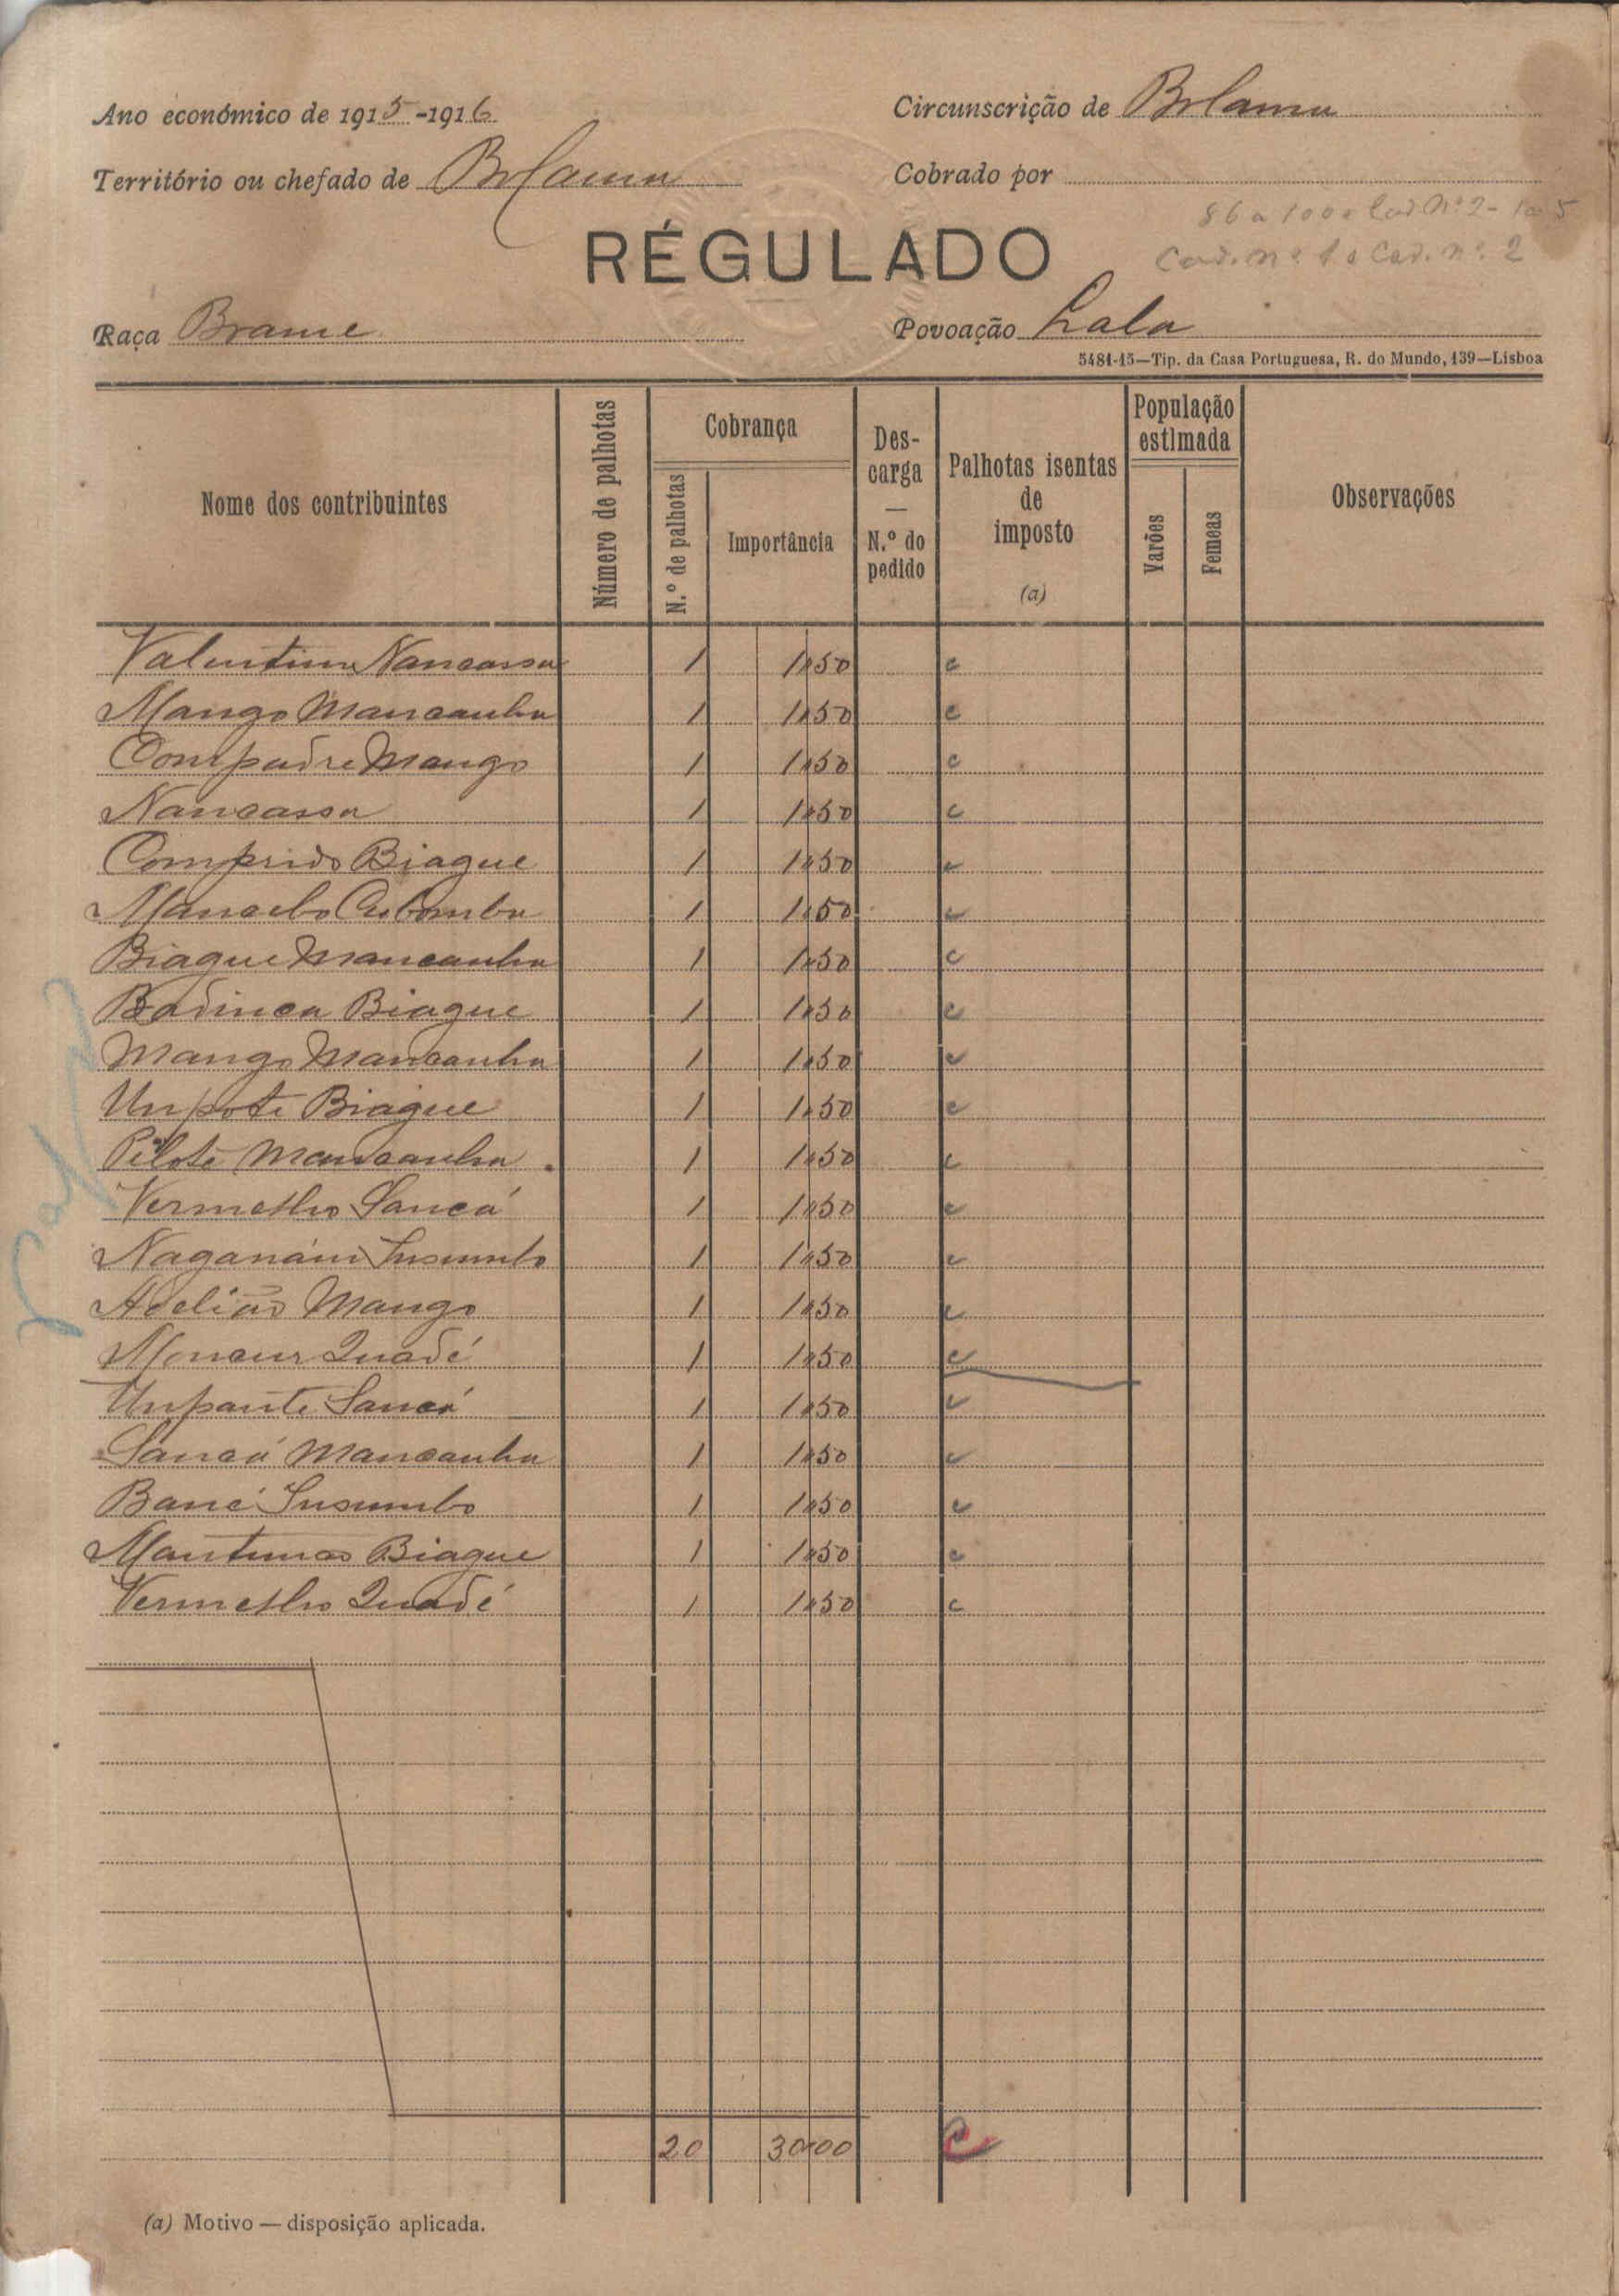 Ano económico de 1915-1916
Circunscrição de Bolama
Território ou chefado de Bolama
Cobrado por
86 a 100 e Cad. Nº 2 - 1 a 5
Cad. nº 1 e Cad. nº 2
RÉGULADO
Raça Brame
Povoação Lala
5481-15—Tip. da Casa Portuguesa, R. do Mundo, 139—Lisboa
Nome dos contribuintes
Número de palhotas
Cobrança
N.º de palhotas
Importância
Descarga
—
N.º do pedido
Palhotas isentas de imposto
(a)
População estimada
Varões
Femeas
Observações
Valentim Nancassa 1 1$50 c
Mango Mancanha 1 1$50 c
Compadre Mango 1 1$50 c
Nancassa 1 1$50 c
Comprido Biague 1 1$50 c
Mancebo 1 1$50 c
Biague Mancanha 1 1$50 c
Badinca Biague 1 1$50 c
Mango Mancanha 1 1$50 c
Unpote Biague 1 1$50 c
Pilote Mancanha 1 1$50 c
Vermelho Sancá 1 1$50 c
Insumbo 1 1$50 c
Mango 1 1$50 c
Quadé 1 1$50 c
Unpante Sancá 1 1$50 c
Sancá Mancanha 1 1$50 c
Bané Insumbo 1 1$50 c
Biague 1 1$50 c
Vermelho Quadé 1 1$50 c
20 30$00 c
(a) Motivo — disposição aplicada.